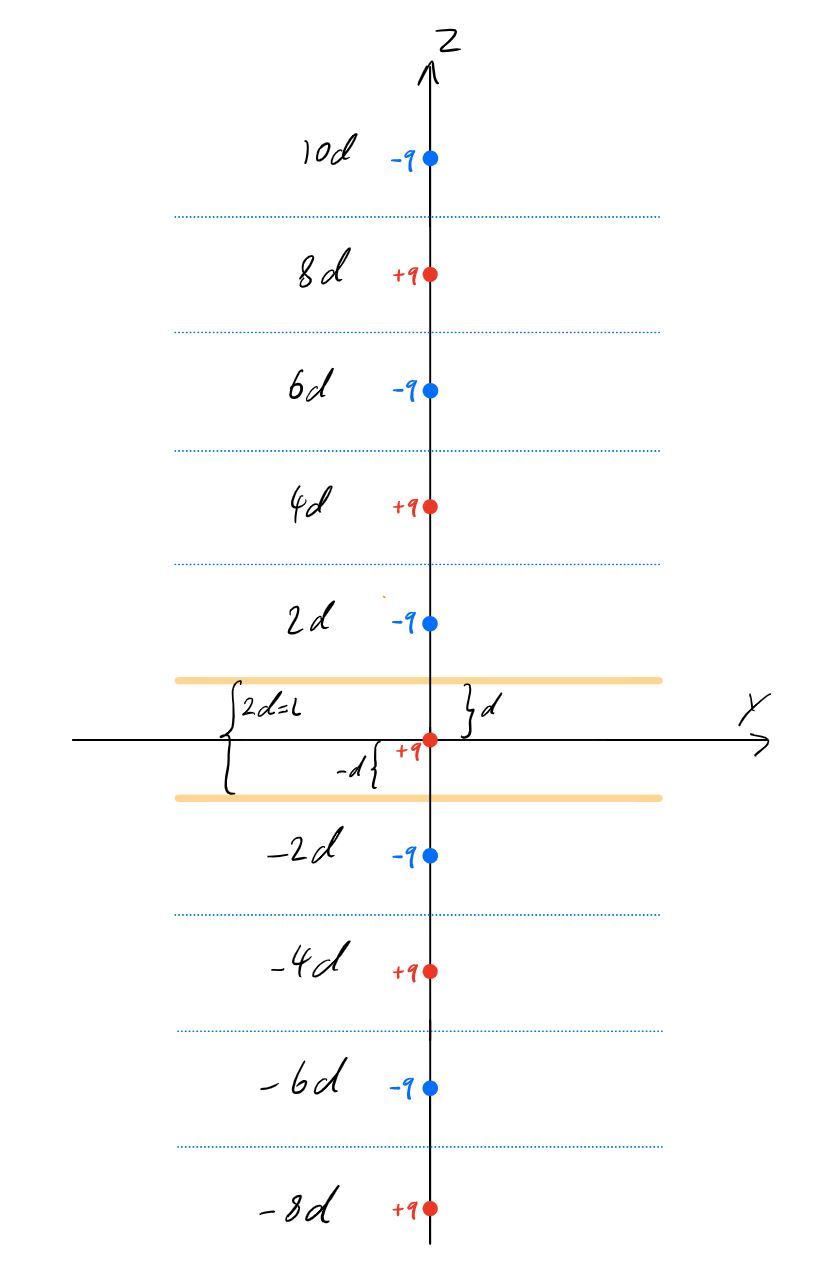 Z
10d -q
8d +q
6d -q
4d +q
2d -q
2d=L }d Y
+q
-d{
-2d -q
-4d +q
-6d -q
-8d +q